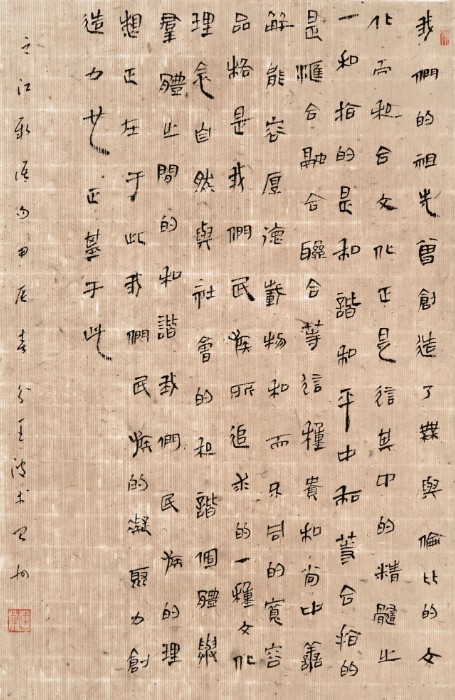 我們的祖先曾創造了無與倫比的文
化而和合文化正是這其中的精髓之
一和指的是和諧和平中和等合指的
是匯合融合聯合等這種貴和尚中善
解能容厚德載物和而不同的寬容
品格是我們民族所追求的一種文化
理念自然與社會的和諧個體與
羣體之間的和諧我們民族的理
想正在于此我們民族的凝聚力創
造力也正基于此
之江新語句甲辰春分王波書